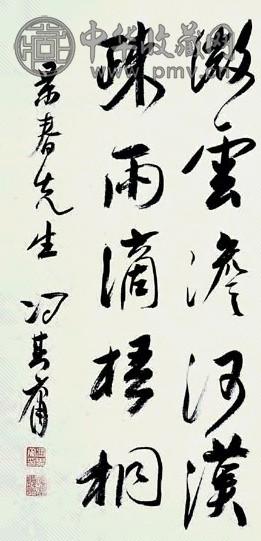 微雲澹河漢
疎雨滴梧桐
景春先生 冯其庸
中华收藏网
www.pmv.cn